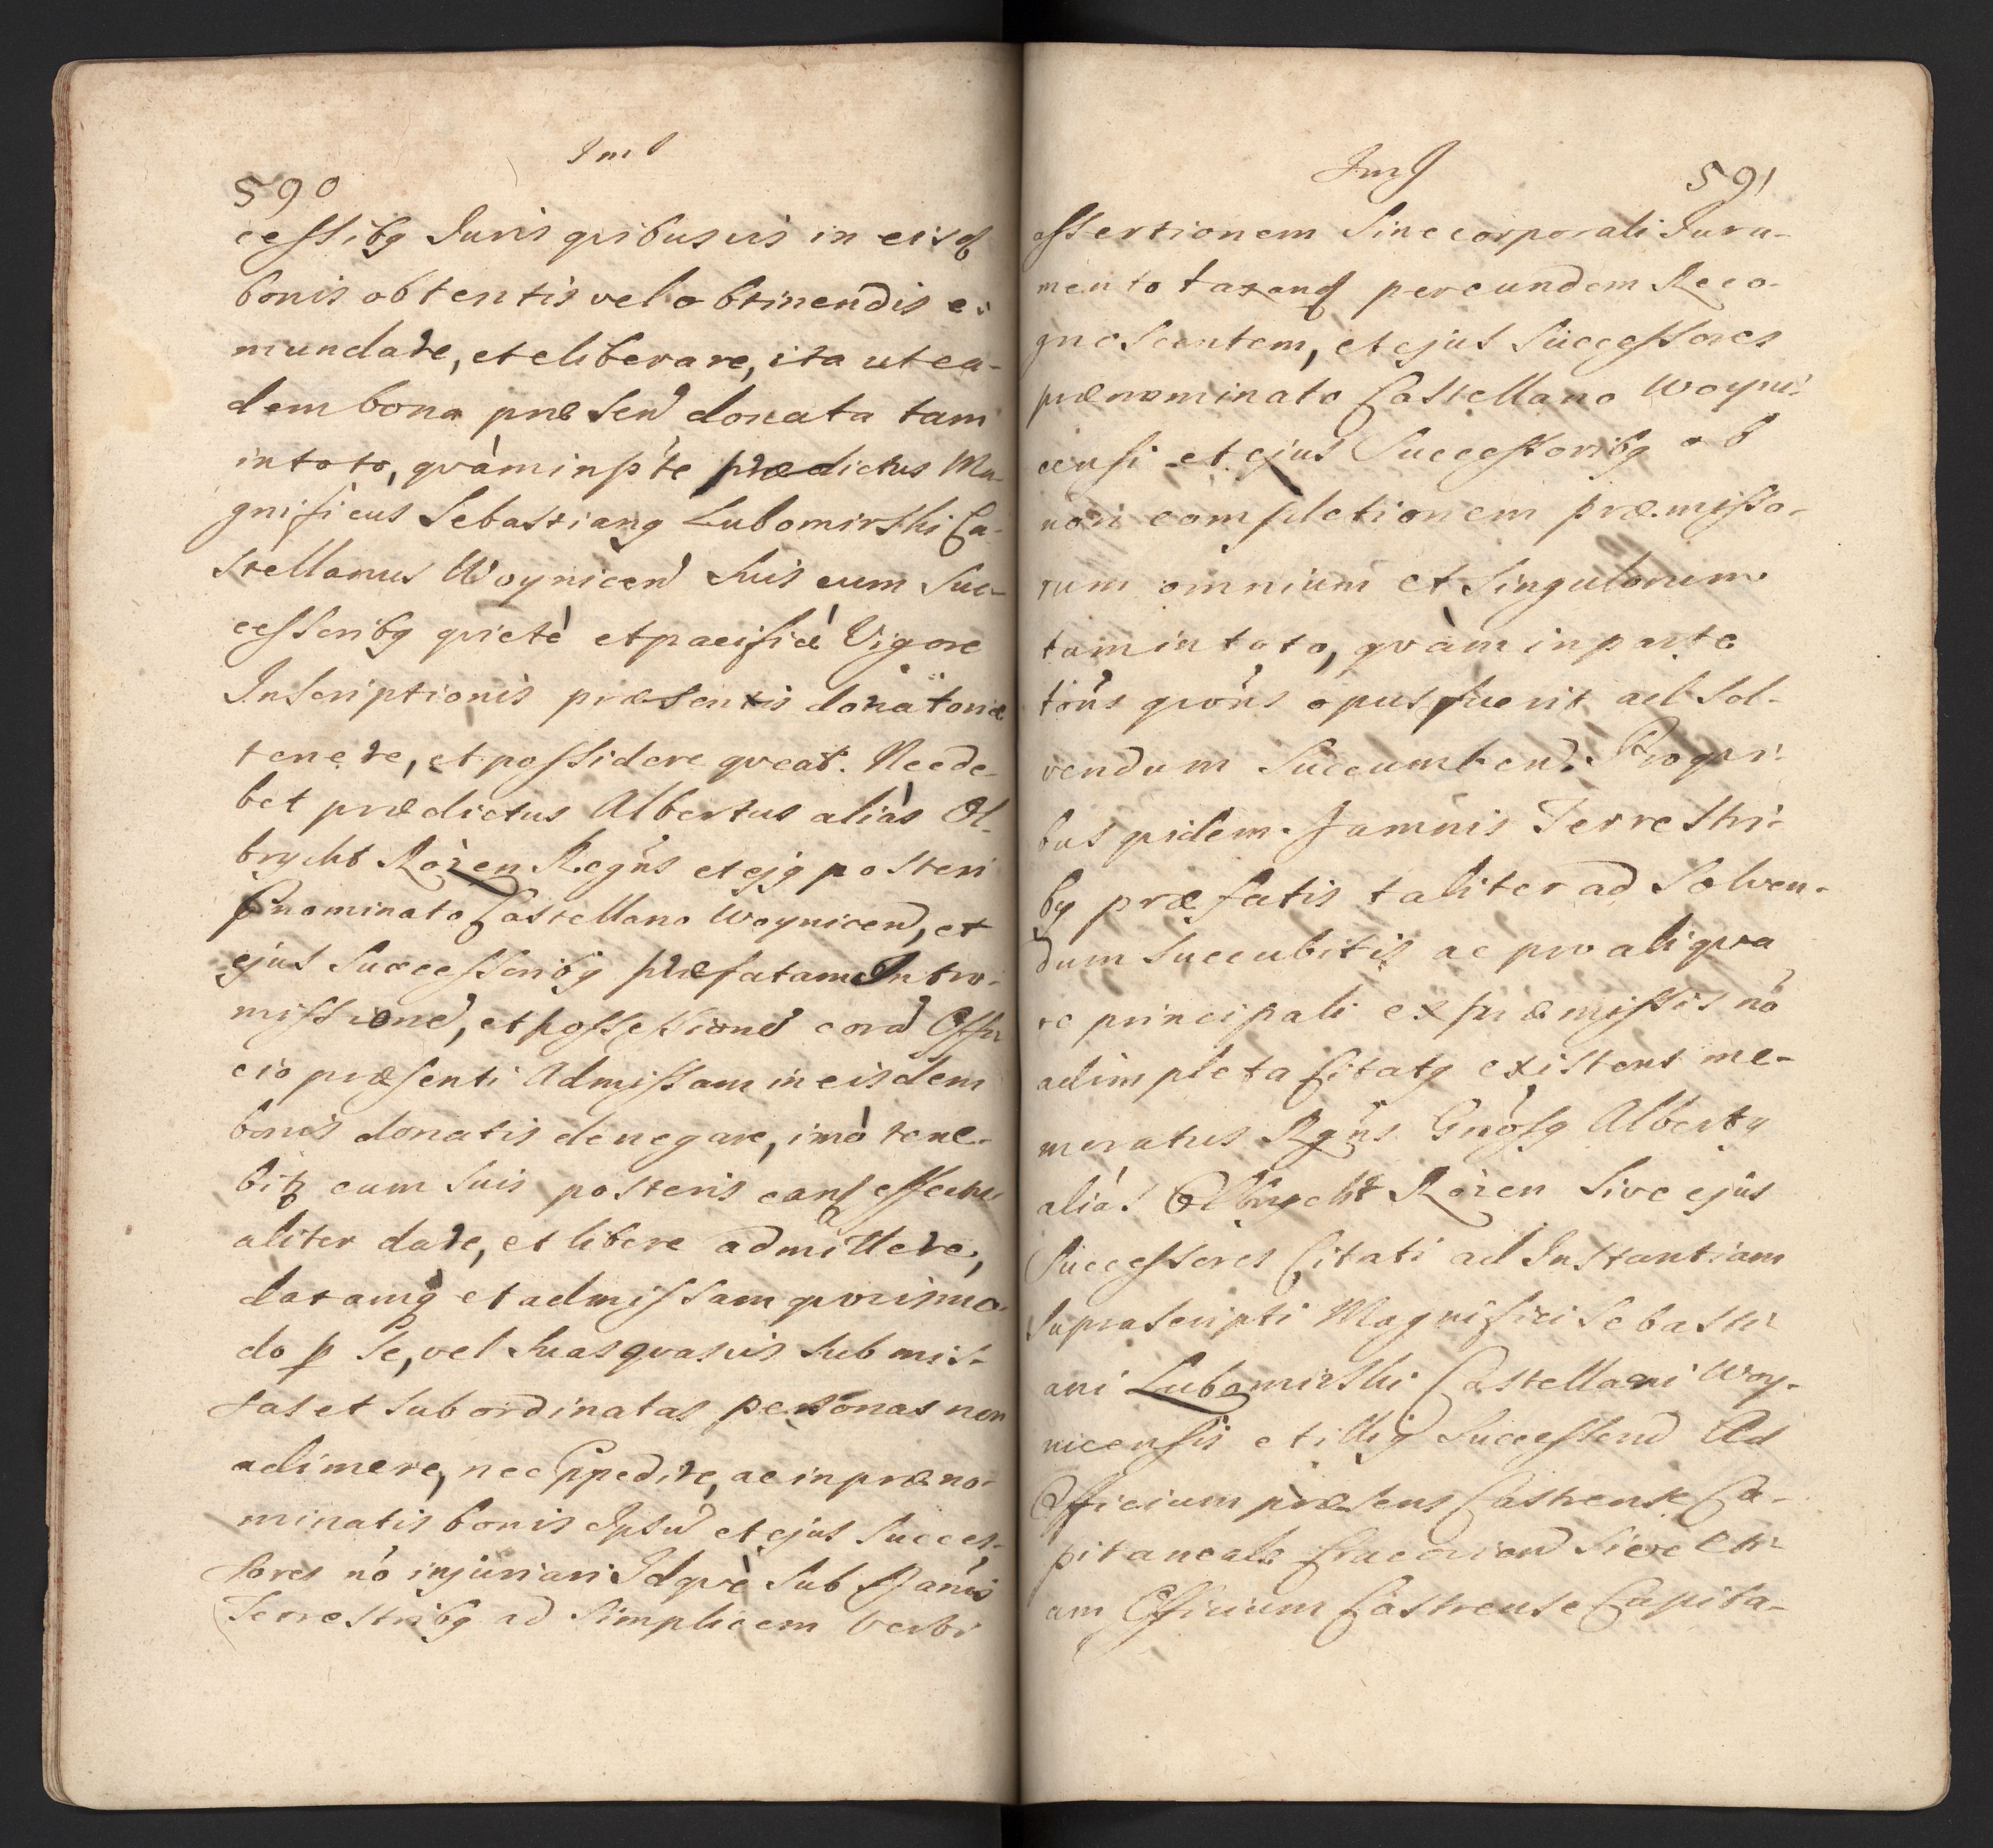 Im
590
cessibg Juris qvibusvis in eisd
bonis obtentis vel obtinendis e-
mundare, et eliberare, ita ut ea-
dem bona præsen donata tam
in toto, qvàm in pte prædictus Ma-
gnificus Sebastiang Lubomirski Ca-
stellanus Woynicen suis cum Suc-
cessoribg qvietè et pacificè Vigore
Inscriptionis præsentis donatoriæ
tenere, et possidere qveat. Nec de-
bet prædictus Albertus aliàs Ol-
brycht Rożen Regns et ejg posteri
Pnominato Castellano Woynicen, et
ejus Successoribg præfatam Intro-
missione, et possessione cora Offi
cio præsenti Admissam in eisdem
bonis donatis denegare, imò tene-
bitz cum suis posteris eand effectu
aliter dare, et libere admittere,
datamq et admissam qvovismo-
do p se, vel suas qvasvis submis-
sas et subordinatas personas non
adimere, nec Ippedire, ac in præno-
minatis bonis Ipsu et ejus Succes-
sores nō injuriari Idqvè sub Damis
Terrestribg ad simplicem verbi
Im
591
assertionem Sine corporali Jura-
mento taxand per eundem Reco-
gnoscentem, et ejus Successores
prænominato Castellano Woyni-
censi et ejus Successoribg ob
non completionem præmisso-
rum omnium et Singulorum
tam in toto, qvàm in parte
tōns qvōns opus fuerit ad Sol-
vendum Succumben. Pro qvi-
bus qvidem Damnis Terrestri-
bg præfatis taliter ad Solven-
dum Succubitis ac pro aliqva
re principali ex præmissis nō
adimpleta Citatg existens me-
moratus Rgns Gnosg Albertg
aliàs Olbrycht Rożen Sive ejus
Successores Citati ad Instantiam
Suprascripti Magnifici Sebasti
ani Lubomirski Castellani Woy-
nicensis et illig Successoru Ad
Officium præsens Castrense Ca-
pitaneale Cracovien Sive eti-
am Officium Castrense Capita-